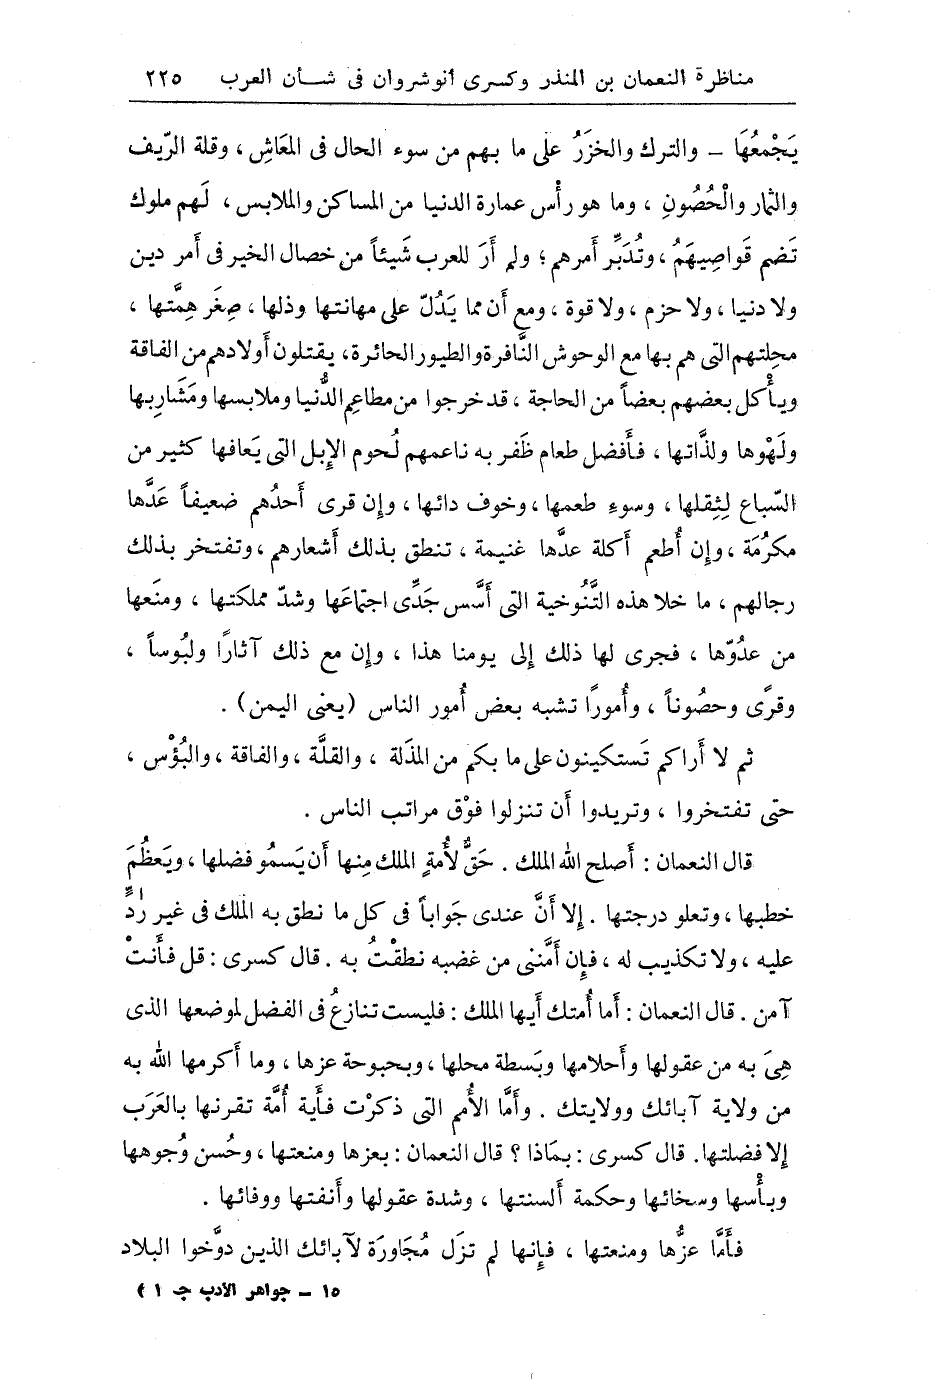 مناظرة النعمان بن المنذر وكسرى أنوشروان فى شــأن العرب ٢٢٥
يَجْمعُهَا – والترك والخزَرُ على ما بهم من سوء الحال فى المعَاشِ ، وقلة الرّيف
والثمار والْحُصُونِ ، وما هو رأْس عمارة الدنيا من المساكن والملابس ، لَهم ملوك
تَضم قَواصِيهَمُ ، وتُدَبِّر أَمرهم ؛ ولم أَرَ للعرب شَيئاً من خصال الخير فى أَمر دين
ولا دنيا ، ولا حزم ، ولا قوة ، ومع أَن مما يَدُلّ على مهانتها وذلها ، صِغَر هِمَّتها ،
محلِتهم التى هم بها مع الوحوش النَّافرة والطيور الحائرة ، يقتلون أَولادهم من الفاقة
ويأْكل بعضهم بعضاً من الحاجة ، قد خرجوا من مطاعِم الدُّنيا وملابسها ومَشَاربها
ولَهْوها ولذَّاتها ، فأَفضل طعام ظَفر به ناعمهم لُحوم الإبل التى يَعافها كثير من
السّباع لِثِقلها ، وسوءِ طعمها ، وخوف دائها ، وإن قرى أَحدُهم ضعيفاً عَدَّها
مكرُمَة ، وإن أُطعم أَكلة عدَّها غنيمة ، تنطق بذلك أَشعارهم ، وتفتخر بذلك
رجالهم ، ما خلا هذه التَّنُوخية التى أَسَّس جَدِّى اجتماعَها وشدّ مملكتها ، ومنَعها
من عدُوّها ، فجرى لها ذلك إلى يومنا هذا ، وإن مع ذلك آثارًا ولبُوساً ،
وقرًى وحصُوناً ، وأُمورًا تشبه بعض أُمور الناس (يعنى اليمن) .
ثم لا أَراكم تَستكينون على ما بكم من المذَلة ، والقلَّة ، والفاقة ، والبُؤْس ،
حتى تفتخروا ، وتريدوا أَن تنزلوا فوْق مراتب الناس .
قال النعمان : أَصلح الله الملك . حَقٌّ لأُمةٍ الملك مِنها أَن يَسمُو فضلها ، ويَعظُمَ
خطبها ، وتعلو درجتها . إلا أَنَّ عندى جَواباً فى كل ما نطق به الملك فى غير رادٍّ
عليه ، ولا تكذيب له ، فإن أَمَّننى من غضبه نطقْتُ به . قال كسرى : قل فأَنتْ
آمن . قال النعمان : أَما أُمتك أَيها الملك : فليست تنازعُ فى الفضل لموضعها الذى
هِىَ به من عقولها وأَحلامها وبَسطة محلها ، وبحبوحة عزها ، وما أَكرمها الله به
من ولاية آبائك وولايتك . وأَمَّا الأُمم التى ذكرْت فأَية أُمَّة تقرنها بالعَرَب
إلا فضلتها. قال كسرى : بمَاذا ؟ قال النعمان : بعزها ومنعتها ، وحُسن وُجوهها
وبأْسها وسخائها وحكمة أَلسنتها ، وشدة عقولها وأَنفتها ووفائها .
فأَمَّا عزُّها ومنعتها ، فإنها لم تزَل مُجَاورَة لآبائك الذين دوَّخوا البلاد
١٥ – جواهر الأدب جـ ١ )